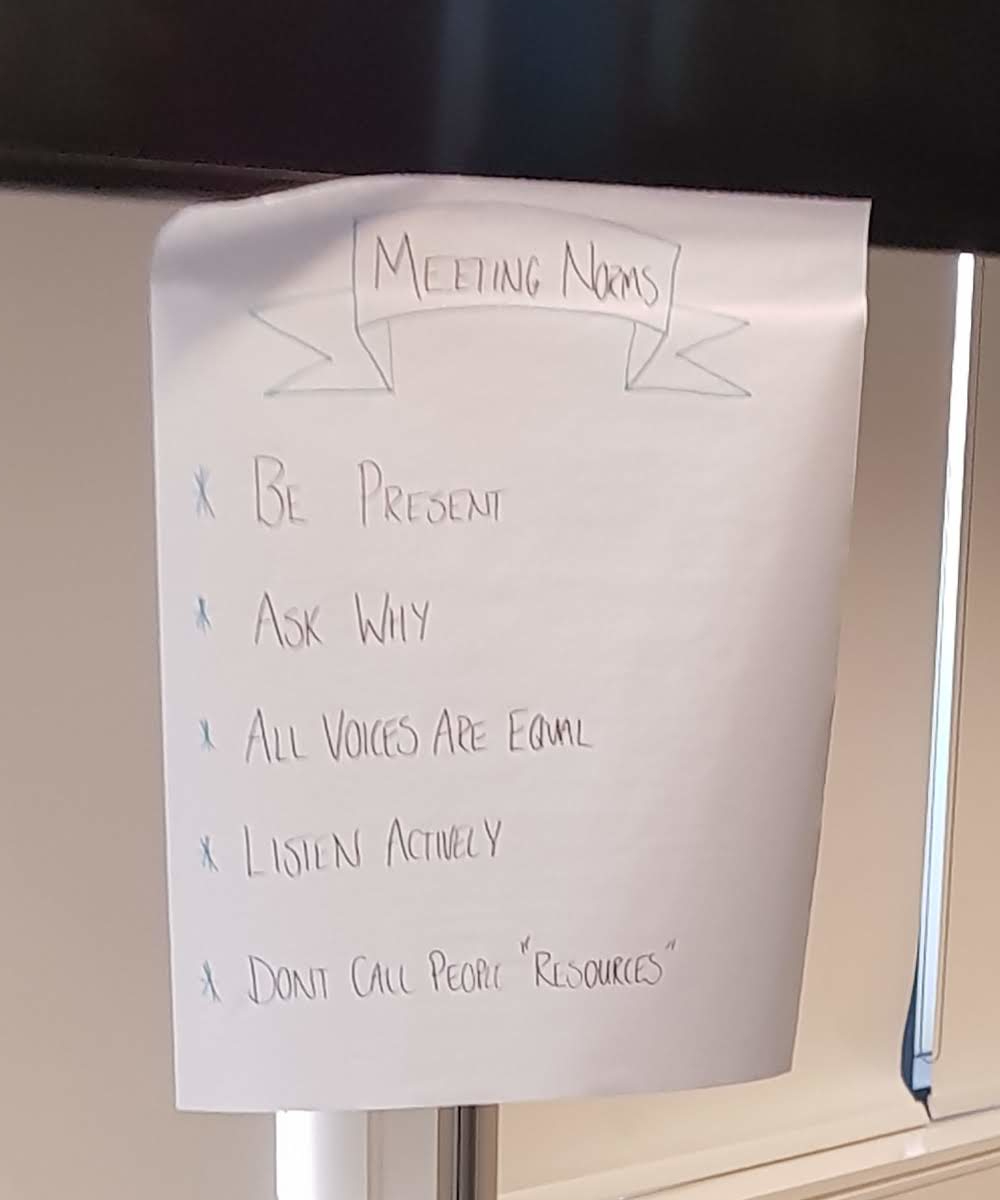 MEETING NORMS
* BE PRESENT
* ASK WHY
* ALL VOICES ARE EQUAL
* LISTEN ACTIVELY
* DONT CALL PEOPLE "RESOURCES"